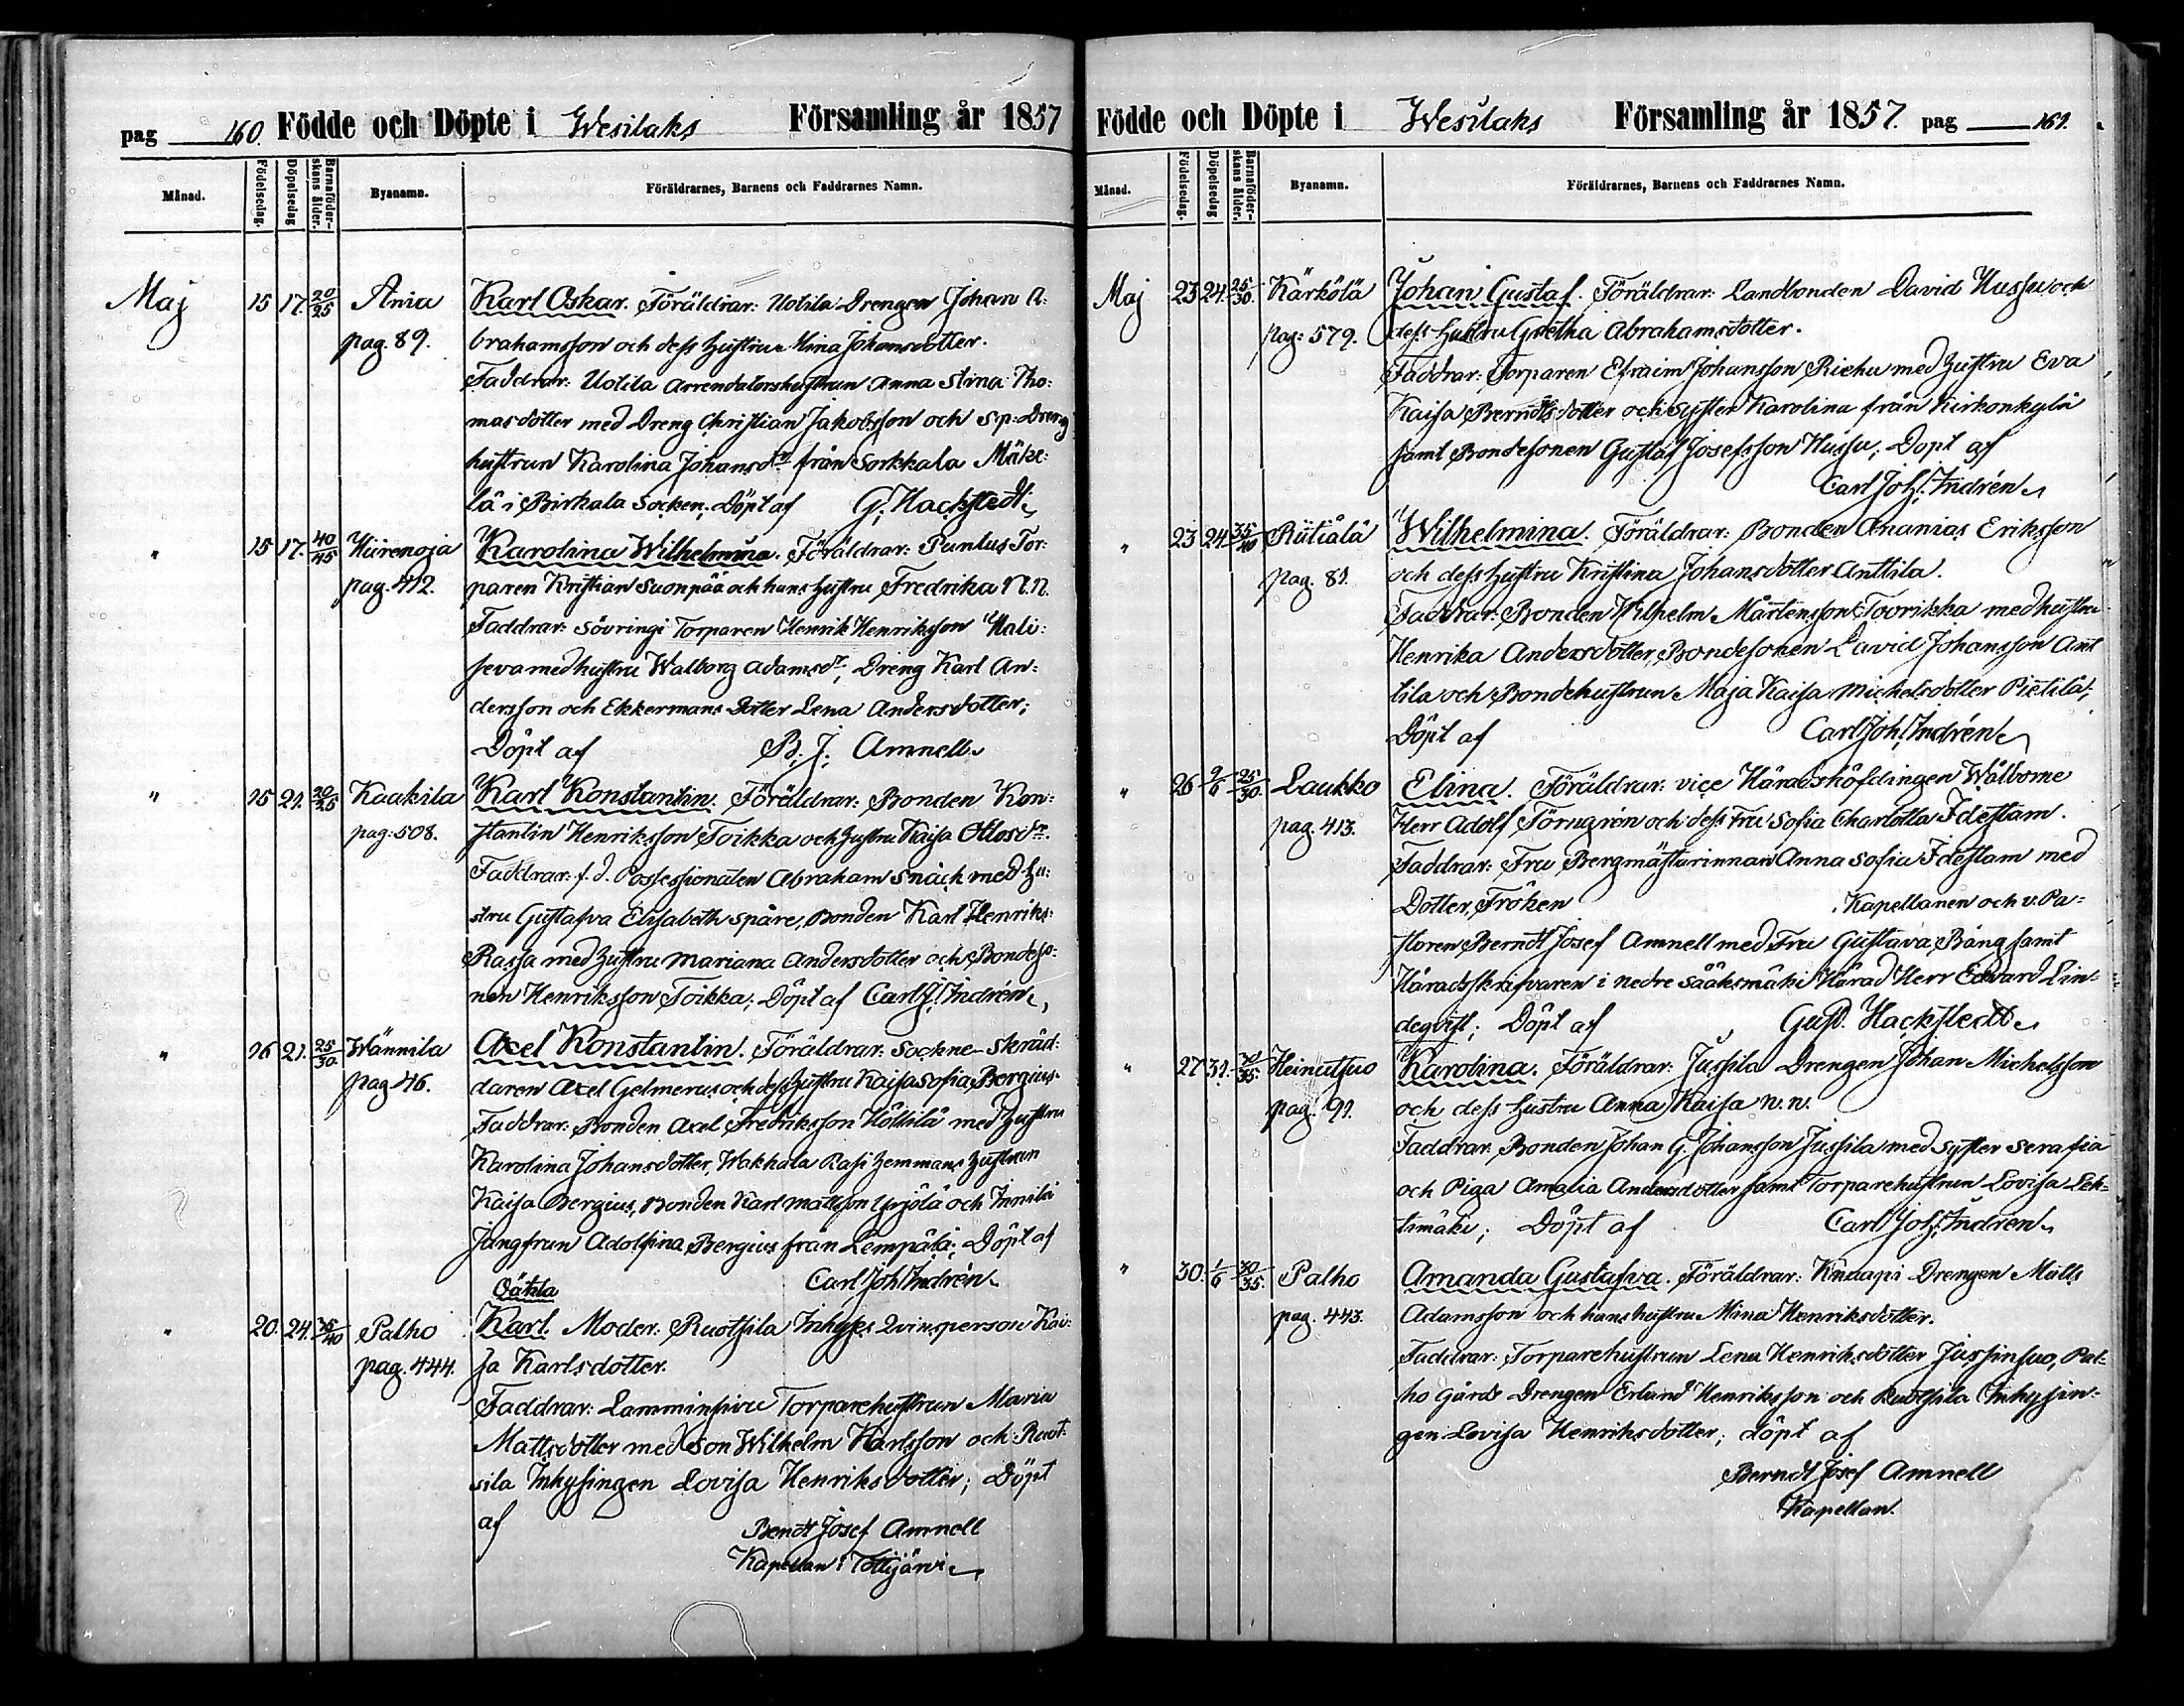 pag 160. Födde och Döpte i Wesilaks Församling år 1857
Månad. Födelsedag. Döpelsedag Barnaföder-skans ålder. Byanamn. Föräldrarnes, Barnens och Faddrarnes Namn.
Maj 15 17. 20/25 Ania Karl Oskar. Föräldrar: Uotila Drengen Johan A:
pag. 89. brahamsson och dess hustru Mina Johansdotter.
Faddrar: Uotila Arrendatorshustrun Anna Stina Tho:
masdotter med Dreng Christian Jakobsson och Sp. Dreng
hustrun Karolina Johansdr från Sorkkala Mäke:
lä i Birkala Socken; Döpt af G. Hackstedt.
" 15 17. 40/45 Hiirenoja Karolina Wilhelmina. Föräldrar: Puntus Tor:
pag. 412. paren Kristian Suonpää och hans hustru Fredrika N.N.
Faddrar: Sövringi Torparen Henrik Henriksson Hali:
seva med hustru Walborg Adamsdr, Dreng Karl An:
dersson och Ekkermans Dotter Lena Andersdotter;
Döpt af B. J. Amnell.
" 15 21. 20/25 Kaakila Karl Konstantin. Föräldrar: Bonden Kon:
pag: 508. stantin Henriksson Toikka och hustru Kaisa Ottosdr.
Faddrar: f.d. Possessionaten Abraham Snäck med hu:
stru Gustafva Elisabeth Spåre, Bonden Karl Henriks:
Rassa med hustru Mariana Andersdotter och Bondeso:
nen Henriksson Toikka; Döpt af Carl J. Indrén.
" 16 21. 25/30. Wännila Axel Konstantin. Föräldrar: Sockne-Skräd:
pag 46. daren Axel Gelmerus och dess hustru Kaisa Sofia Bergius.
Faddrar: Bonden Axel Fredriksson Höllilä med hustru
Karolina Johansdotter, Wakkala Rasi hemmans hustrun
Kaisa Bergius, Bonden Karl Mattsson Yrjölä och Innilä
Jungfrun Adolfina Bergius från Lempälä; Döpt af
Carl Joh. Indrén.
Oäkta
" 20. 24. 35/40 Palho Karl. Moder: Ruotsila Inhyses Qvinsperson Kai:
pag. 444. sa Karlsdotter.
Faddrar: Lamminsivu Torparehustrun Maria
Mattsdotter med Son Wilhelm Karlsson och Ruot:
sila Inhysingen Lovisa Henriksdotter; Döpt
af Berndt Josef Amnell
Kapellan i Tottijärvi
Födde och Döpte i Wesilaks Församling år 1857. pag 161.
Månad. Födelsedag. Döpelsedag Barnaföder-skans ålder. Byanamn. Föräldrarnes, Barnens och Faddrarnes Namn.
Maj 23 24. 25/30. Kärkölä Johan Gustaf. Föräldrar: Landbonden David Hussu och
pag: 579. dess hustru Gretha Abrahamsdotter.
Faddrar: Torparen Efraim Johansson Riehu med hustru Eva
Kaisa Berndtsdotter och Syster Karolina från Kirkonkylä
samt Bondesonen Gustaf Josefsson Hussu; Döpt af
Carl Joh. Indrén.
" 23 24 35/40 Riitiälä Wilhelmina. Föräldrar: Bonden Ananias Eriksson
pag. 81. och dess hustru Kristina Johansdotter Anttila.
Faddrar: Bonden Wilhelm Mårtensson Toorikka med hustru
Henrika Andersdotter, Bondesonen David Johansson Ant
tila och Bondehustrun Maja Kaisa Michelsdotter Pietilä;
Döpt af Carl Joh. Indrén
" 26 2/6 25/30. Laukko Elina. Föräldrar: vice Häradshöfdingen Wälborne
pag. 413. Herr Adolf Törngrén och dess Fru Sofia Charlotta Idestam.
Faddrar: Fru Bergmästarinnan Anna Sofia Idestam med
Dotter, Fröken . Kapellanen och v. Pa=
storen Berndt Josef Amnell med Fru Gustava Bång samt
Häradsskrifvaren i nedre Sääksmäki Härad Herr Edvard Lin-
degvist; Döpt af Gust. Hackstedt.
" 27 31. 30/35. Heinutsuo Karolina. Föräldrar: Jussila Drengen Johan Michelsson
pag. 91. och dess hustru Anna Kaisa N.N.
Faddrar: Bonden Johan G. Johansson Jussila med Syster Serafia
och Piga Amalia Andersdotter samt Torparehustrun Lovisa Leh-
timäki; Döpt af Carl Joh. Indrén.
" 30. 1/6 30/35. Palho Amanda Gustafva. Föräldrar: Knaapi Drengen Matts
pag. 443. Adamsson och hans hustru Mina Henriksdotter.
Faddrar: Torparehustrun Lena Henriksdotter Jussinsuo, Pal-
ho Gårds Drengen Erland Henriksson och Ruotsila Inhysin-
gen Lovisa Henriksdotter; döpt af
Berndt Josef Amnell
Kapellan.